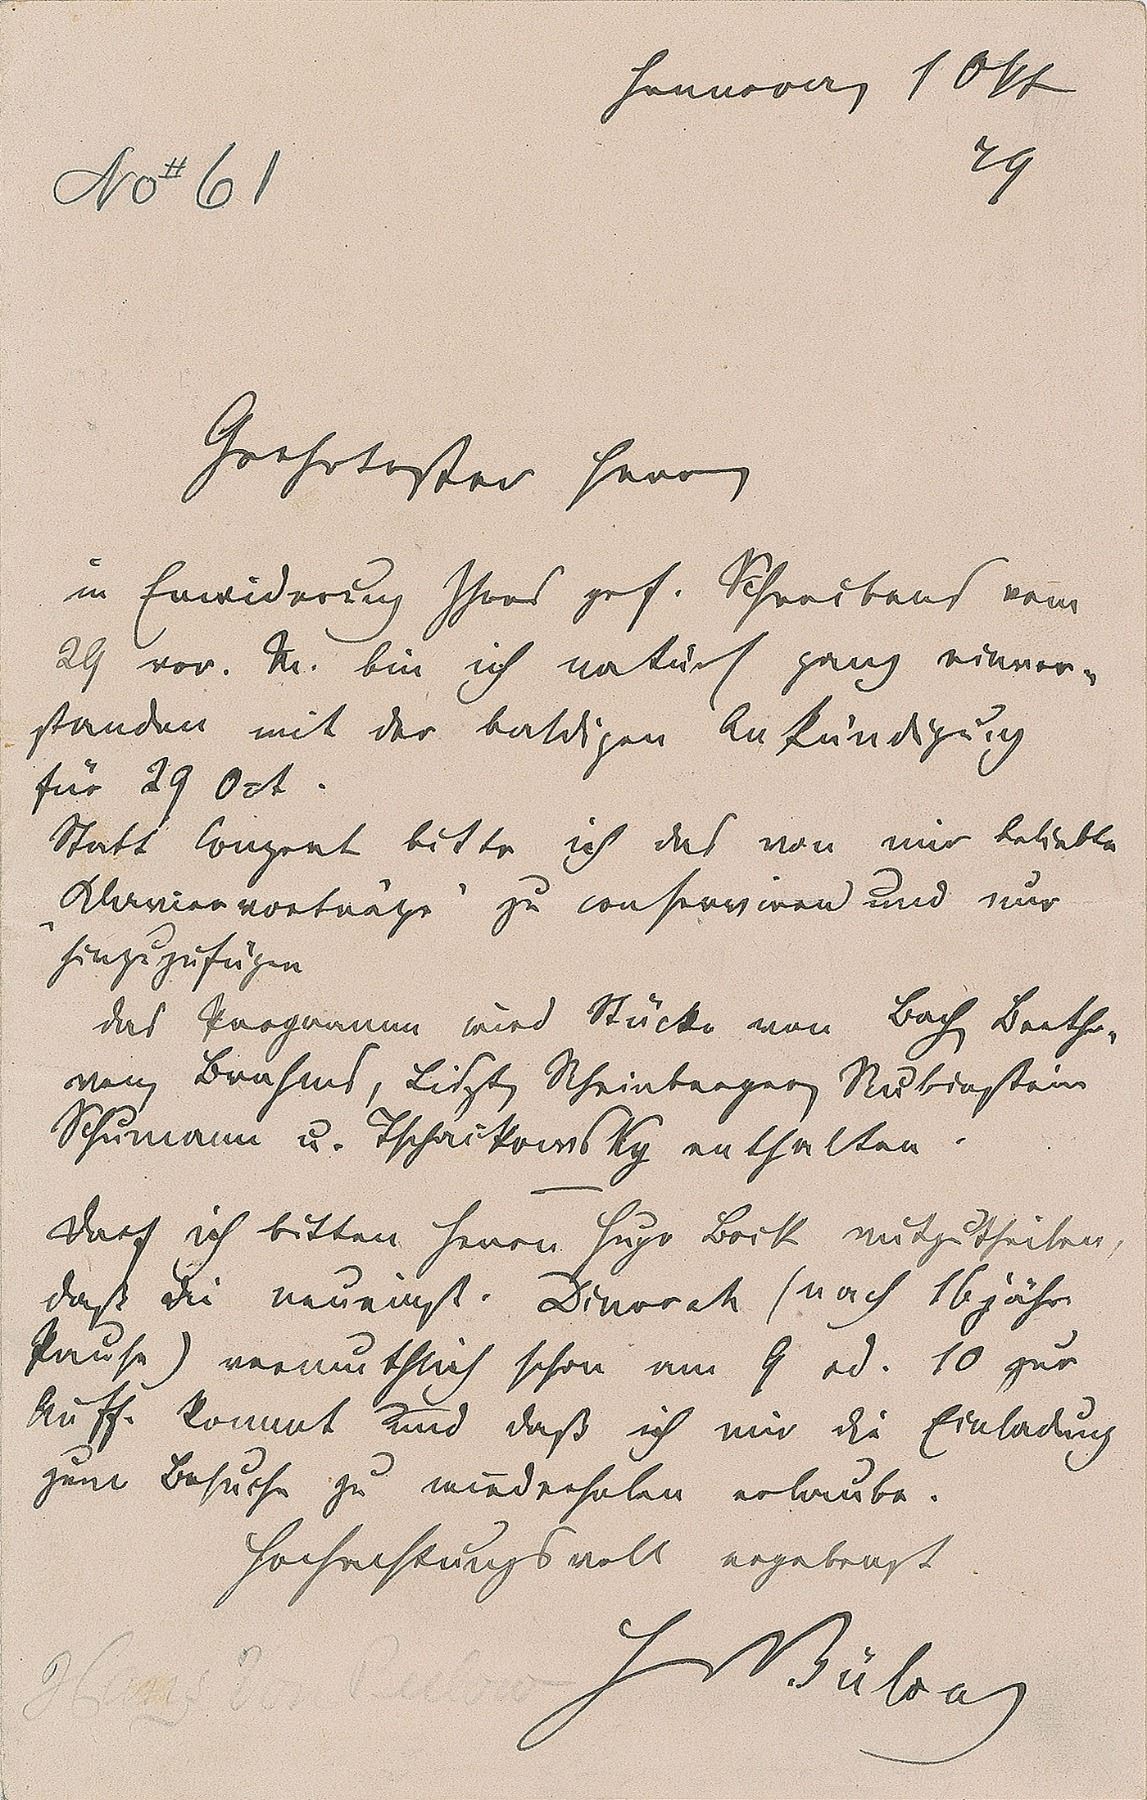 Hannover, 1 Okt
79
No# 61
Geehrtester Herr,
in Erwiderung Ihres gef. Schreibens vom
29 vor. M. bin ich natürl ganz einver-
standen mit der baldigen Ankündigung
für 29 Oct.
Statt Conzert bitte ich das von mir beliebte
„Klaviervorträge" zu conserviren und nur
hinzuzufügen
das Programm wird Stücke von Bach, Beetho-
ven, Brahms, Liszt, Rheinberger, Rubinstein
Schumann u. Tschaikowsky enthalten.
Darf ich bitten Herrn Hugo Bock mitzutheilen,
daß die neueinst. Dinorah (nach 16jähr
Pause) vermuthlich schon am 9 od. 10 zur
Auff. kommt und daß ich mir die Einladung
zum Besuche zu wiederholen erlaube.
Hochachtungsvoll ergebenst
H v Bülow
Hans von Bulow